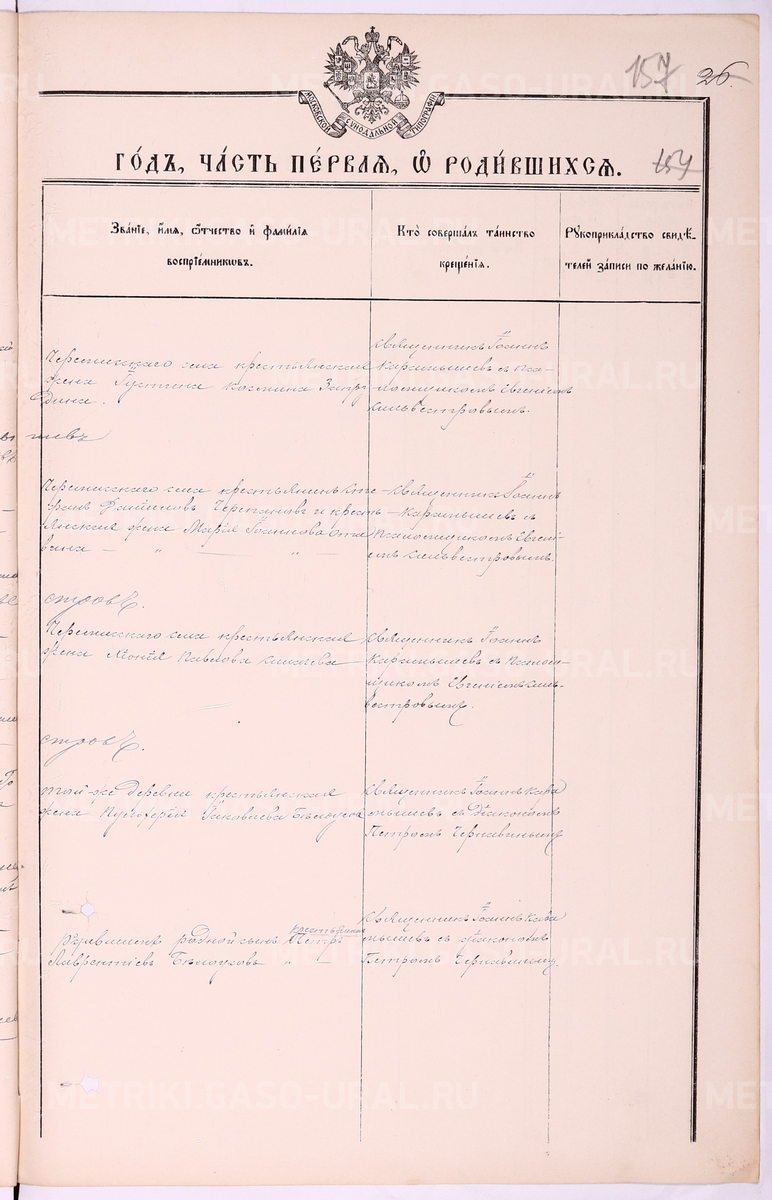 157 26.
МОСКОВСКОЙ СУНОДАЛЬНОЙ ТИПОГРАФІИ
ГО́ДЪ, ЧА́СТЬ ПЕ́РВАЯ, Ѡ҆ РОДИ́ВШИХСЯ.
154
Зва́нїе, и҆́мѧ, ѻ҆́тчество и҆ фами́лїѧ
воспрїе́мникѡвъ.
Кто̀ соверша́лъ та́инство
креще́нїѧ.
Рꙋкоприкла́дство свидѣ́-
телей за́писи по жела́нїю.
Черемисскаго села крестьянская
жена Іустина Космина
дина.
Священникъ Іоаннъ
Карамышевъ съ Пса-
ломщикомъ Евгеніемъ
Сильвестровымъ.
Черемисскаго села крестьянинъ
Черепановъ и кресть-
янская жена Марія Іоаннова
вина — " — " —
Священникъ Іоаннъ
Карамышевъ съ
Псаломщикомъ Евгені-
емъ Сильвестровымъ.
стровъ.
Черемисскаго села крестьянская
жена Павлова
Священникъ Іоаннъ
Карамышевъ съ Псалом-
щикомъ Евгеніемъ Силь-
вестровымъ.
стровъ.
той-же деревни крестьянская
жена Іаковлева Бѣлоусова
Священникъ Іоаннъ Кара
мышевъ съ Діакономъ
Петромъ Чернавинымъ
родной сынъ крестьянинъ Петръ
Лаврентіевъ Бѣлоусовъ " —
Священникъ Іоаннъ Кара
мышевъ съ діакономъ
Петромъ Чернавинымъ.
METRIKI.GASO-URAL.RU